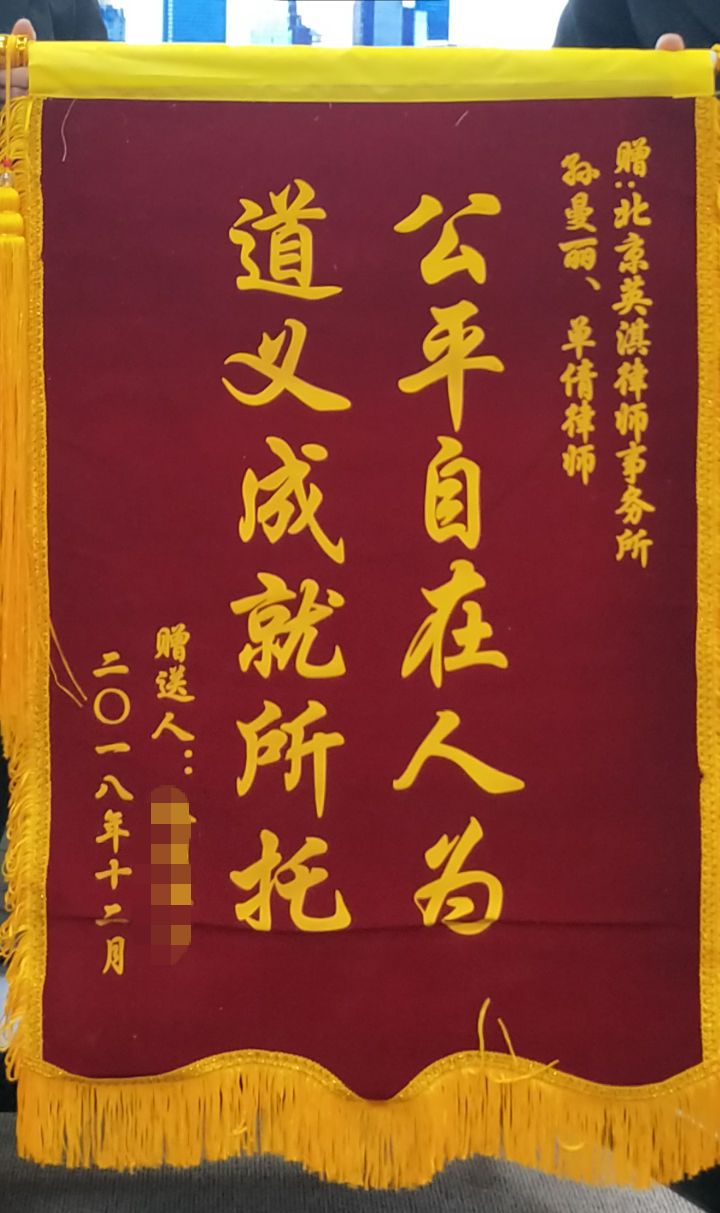 赠:北京英淇律师事务所
孙曼丽、单倩律师
公平自在人为
道义成就所托
赠送人:
二〇一八年十二月